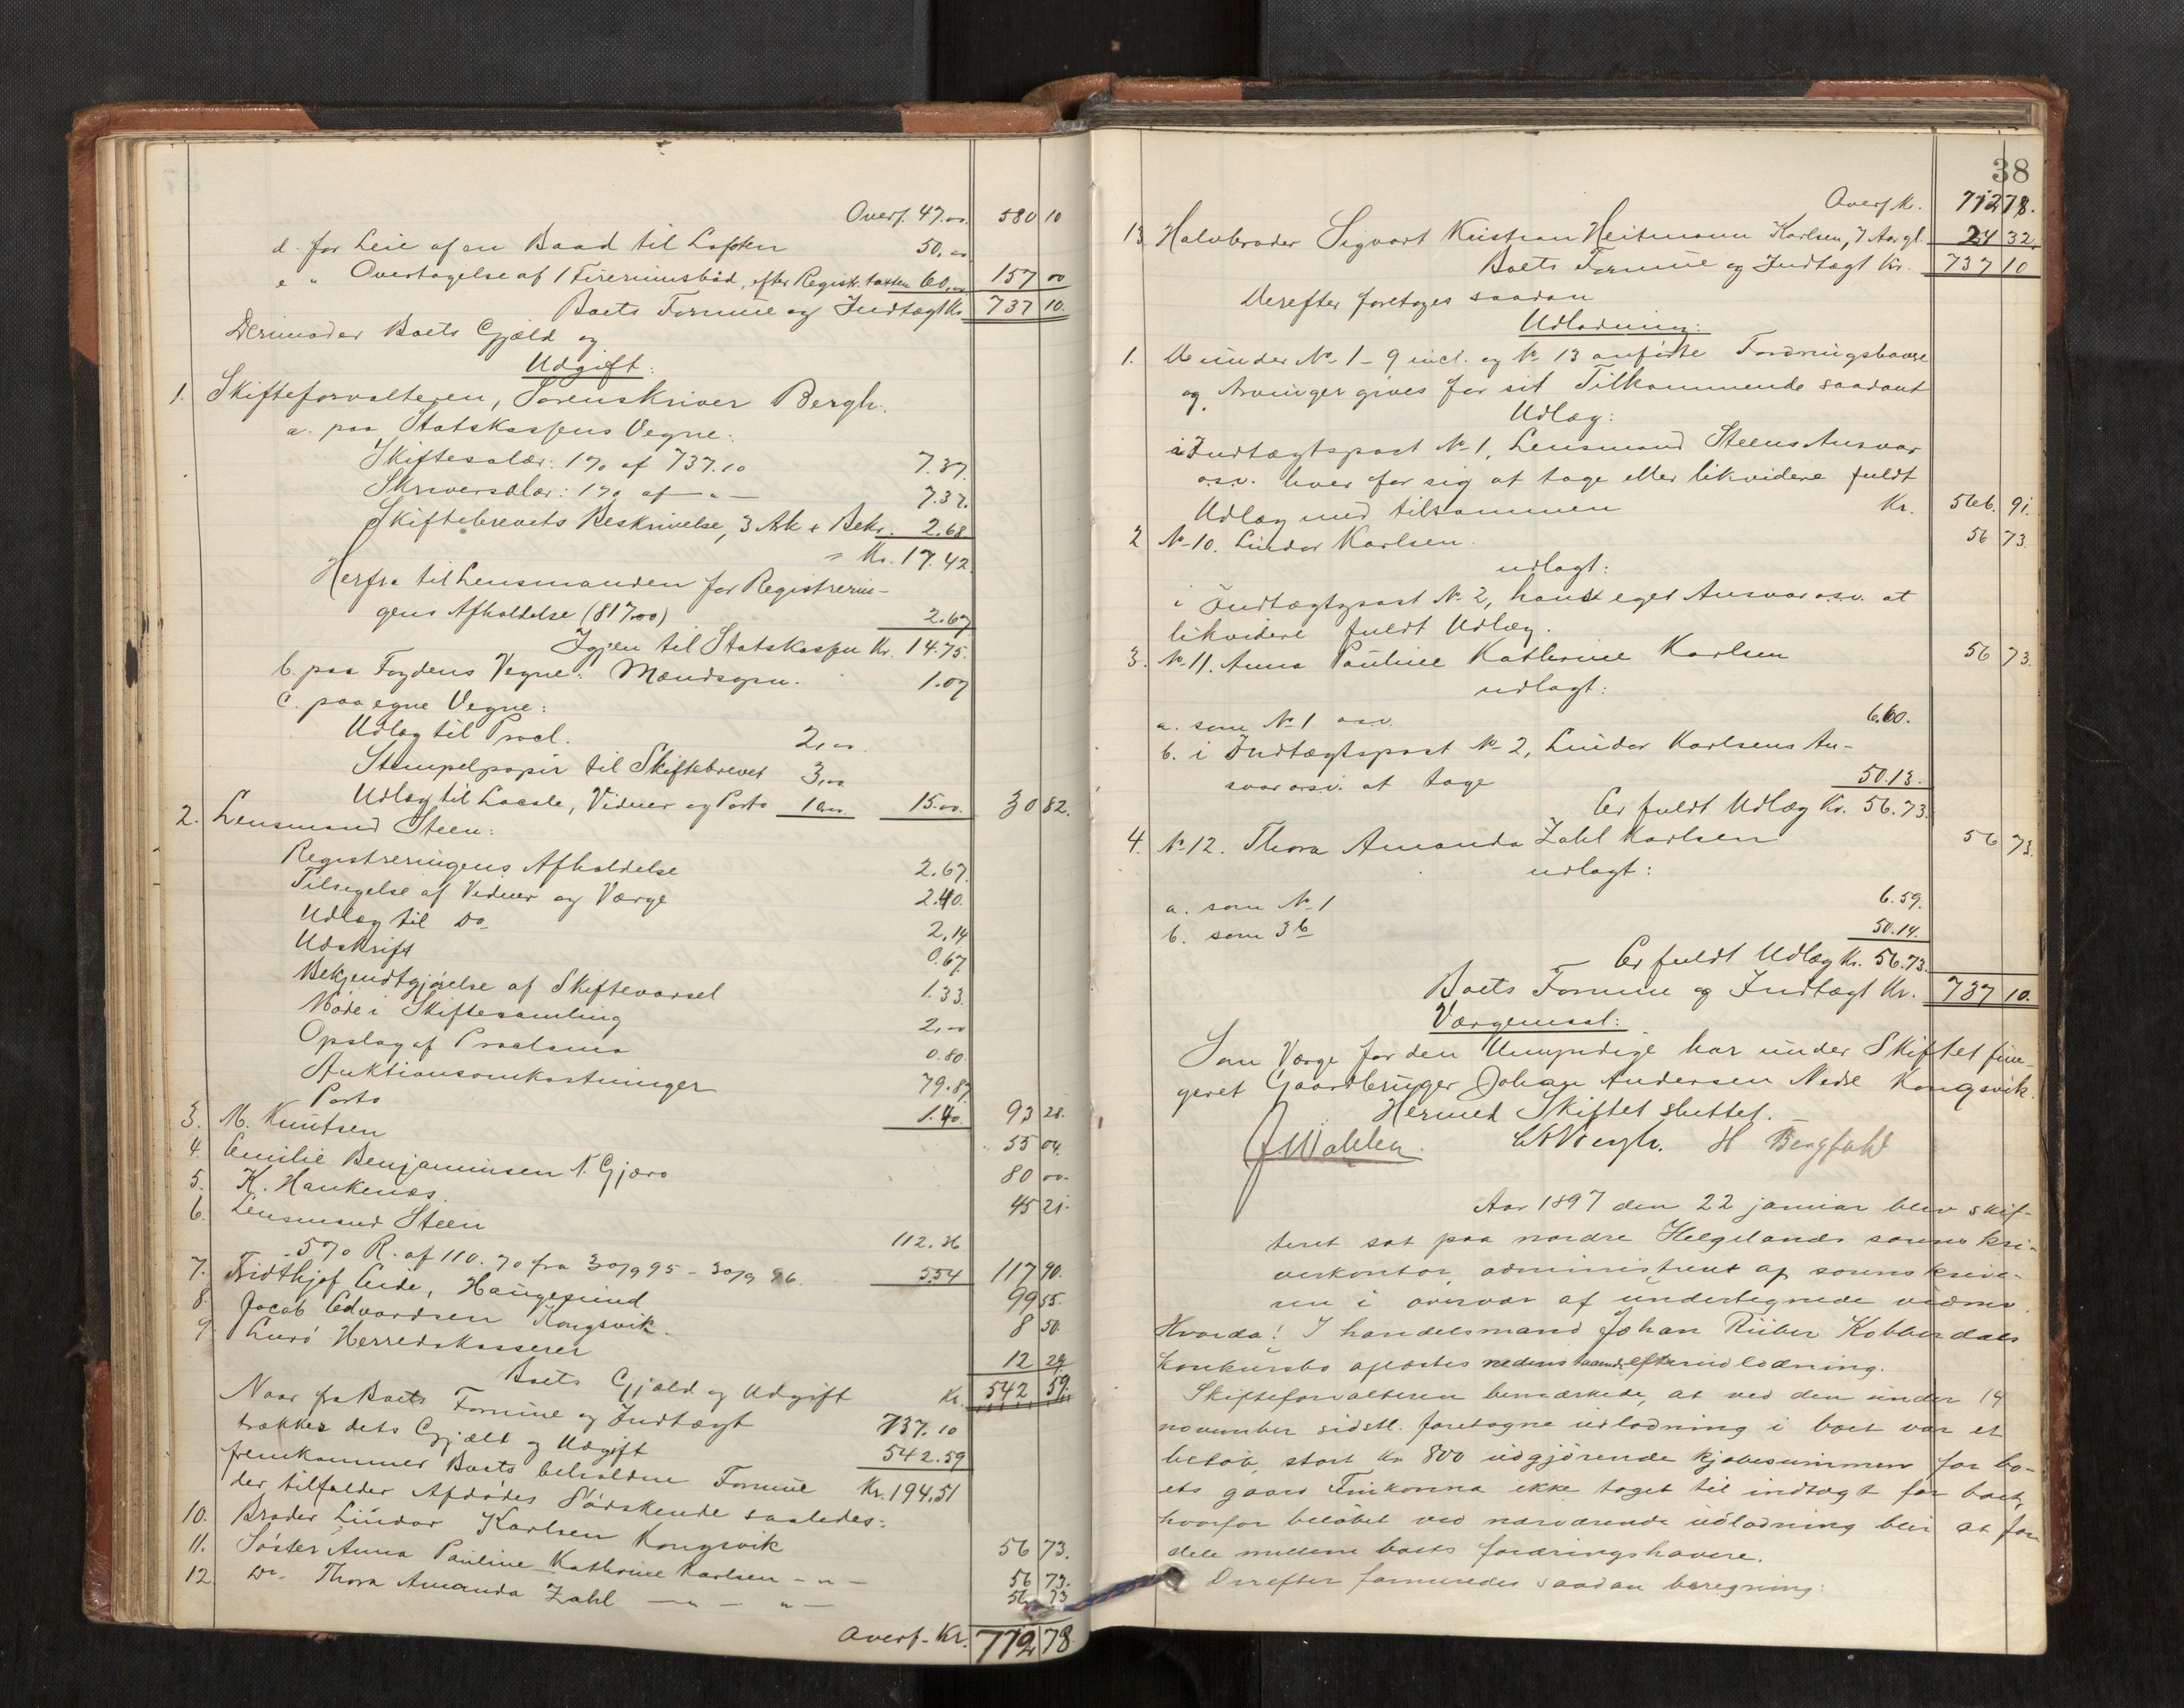 Overf. 47.00 580 10
d. for Leie af en Baad til Lofoten 50.00
e " Overtagelse af 1 Firerumsbåd, efter Registr. taxten 60.00 157 00
Boets Formue og Indtægt Kr 737 10.
Derimod er Boets Gjæld og
Udgift:
1. Skifteforvalteren, Sorenskriver Bergh.
a. paa Statskassens Vegne:
Skiftesalær: 1% af 737.10 7.37.
Skriversalær: 1% af — " — 7.37.
Skiftebrevets Beskrivelse, 3 Ark + Bekr. 2.68
= Kr. 17.42.
Herfra til Lensmanden for Registrerin-
gens Afholdelse (817.00) 2.67
Igjen til Statskassen Kr. 14.75.
b. paa Fogdens Vegne: 1.07
c. paa egne Vegne:
Udlæg til Procl. 2.00
Stempelpapir til Skiftebrevet 3.00
Udlæg til Locale, Vidner og Porto 10.00 15.00. 30 82.
2. Lensmand Steen:
Registreringens Afholdelse 2.67.
Tilsigelse af Vidner og Værge 2.40.
Udlæg til Do 2.14
Udskrift 0.67
Bekjendtgjørelse af Skiftevarsel 1.33.
Møde i Skiftesamling 2.00
Opslag af Proclama 0.80.
Auktionsomkostninger 79.87
Porto 1.40. 93 28.
3. M. Knutsen 55 04.
4. Emilie Benjaminsen N. Gjæro 80 00.
5. K. Haukenæs. 45 21.
6. Lensmand Steen 112.36
5% R. af 110.70 fra 30/9 95 - 30/9 96. 5.54 117 90.
7. Fridthjof Eide, Haugesund 99 55.
8. Jacob Edvardsen Kongsvik. 8 50.
9. Lurø Herredskasserer 12 29
Boets Gjæld og Udgift Kr. 542 59.
Naar fra Boets Formue og Indtægt 737.10
trækkes dets Gjæld og Udgift 542.59
fremkommer Boets beholdne Formue Kr. 194.51
der tilfalder Afdødes Sødskende saaledes:
10. Broder Lindor Karlsen Kongsvik 56 73.
11. Søster Anna Pauline Kathrine Karlsen - " - 56 73.
12. Do Thora Amanda Zahl — " — " — 56 73
Overf. Kr. 712 78
38
Overf Kr. 712 78.
13 Halvbroder Sigvart Kristian Heitmann Karlsen, 7 Aar gl. 24 32.
Boets Formue og Indtægt Kr. 737 10
Derefter foretoges saadan
Udlodning:
1. De under No 1 - 9 incl. og No 13 anførte Fordringshavere
og Arvinger gives for sit Tilkommende saadant
Udlæg:
i Indtægtspost No 1, Lensmand Steens Ansvar
o.s.v. hver for sig at tage eller likvidere fuldt
Udlæg med tilsammen Kr. 566. 91.
2 No 10. Lindor Karlsen. 56 73.
udlagt:
i Indtægtspost No 2, hans eget Ansvar o.s.v. at
likvidere fuldt Udlæg.
3. No 11. Anna Pauline Kathrine Karlsen 56 73.
udlagt:
a. som No 1 o.s.v. 6.60.
b. i Indtægtspost No 2, Lindor Karlsens An-
svar o.s.v. at tage 50.13.
Er fuldt Udlæg Kr. 56.73.
4. No 12. Thora Amanda Zahl Karlsen 56 73.
udlagt:
a. som No 1 6.59.
b. som 3 b 50.14.
Er fuldt Udlæg Kr. 56.73.
Boets Formue og Indtægt Kr. 737 10.
Værgemaal:
Som Værge for den Umyndige har under Skiftet fun-
geret Gaardbruger Johan Andersen Nedre Kongsvik.
Hermed Skiftet sluttet.
Bergh. H Bergfald
Aar 1897 den 22 januar blev skif-
teret sat paa nordre Helgelands sorenskri-
verkontor, administreret af sorenskrive-
ren i overvær af undertegnede vidner.
Hvorda: I handelsmand Johan Rüber Kobberdals
konkursbo afæstes nedenstaaende efterudlodning.
Skifteforvalteren bemærkede, at ved den under 14
november sidstl. foretagne udlodning i boet var et
beløb, stort kr 800 udgjørende kjøbesummen for bo-
ets gaard Finkonna ikke taget til indtægt for boet,
hvorfor beløbet ved nærværende udlodning blir at for-
dele mellem boets fordringshavere.
Derefter formeredes saadan beregning: